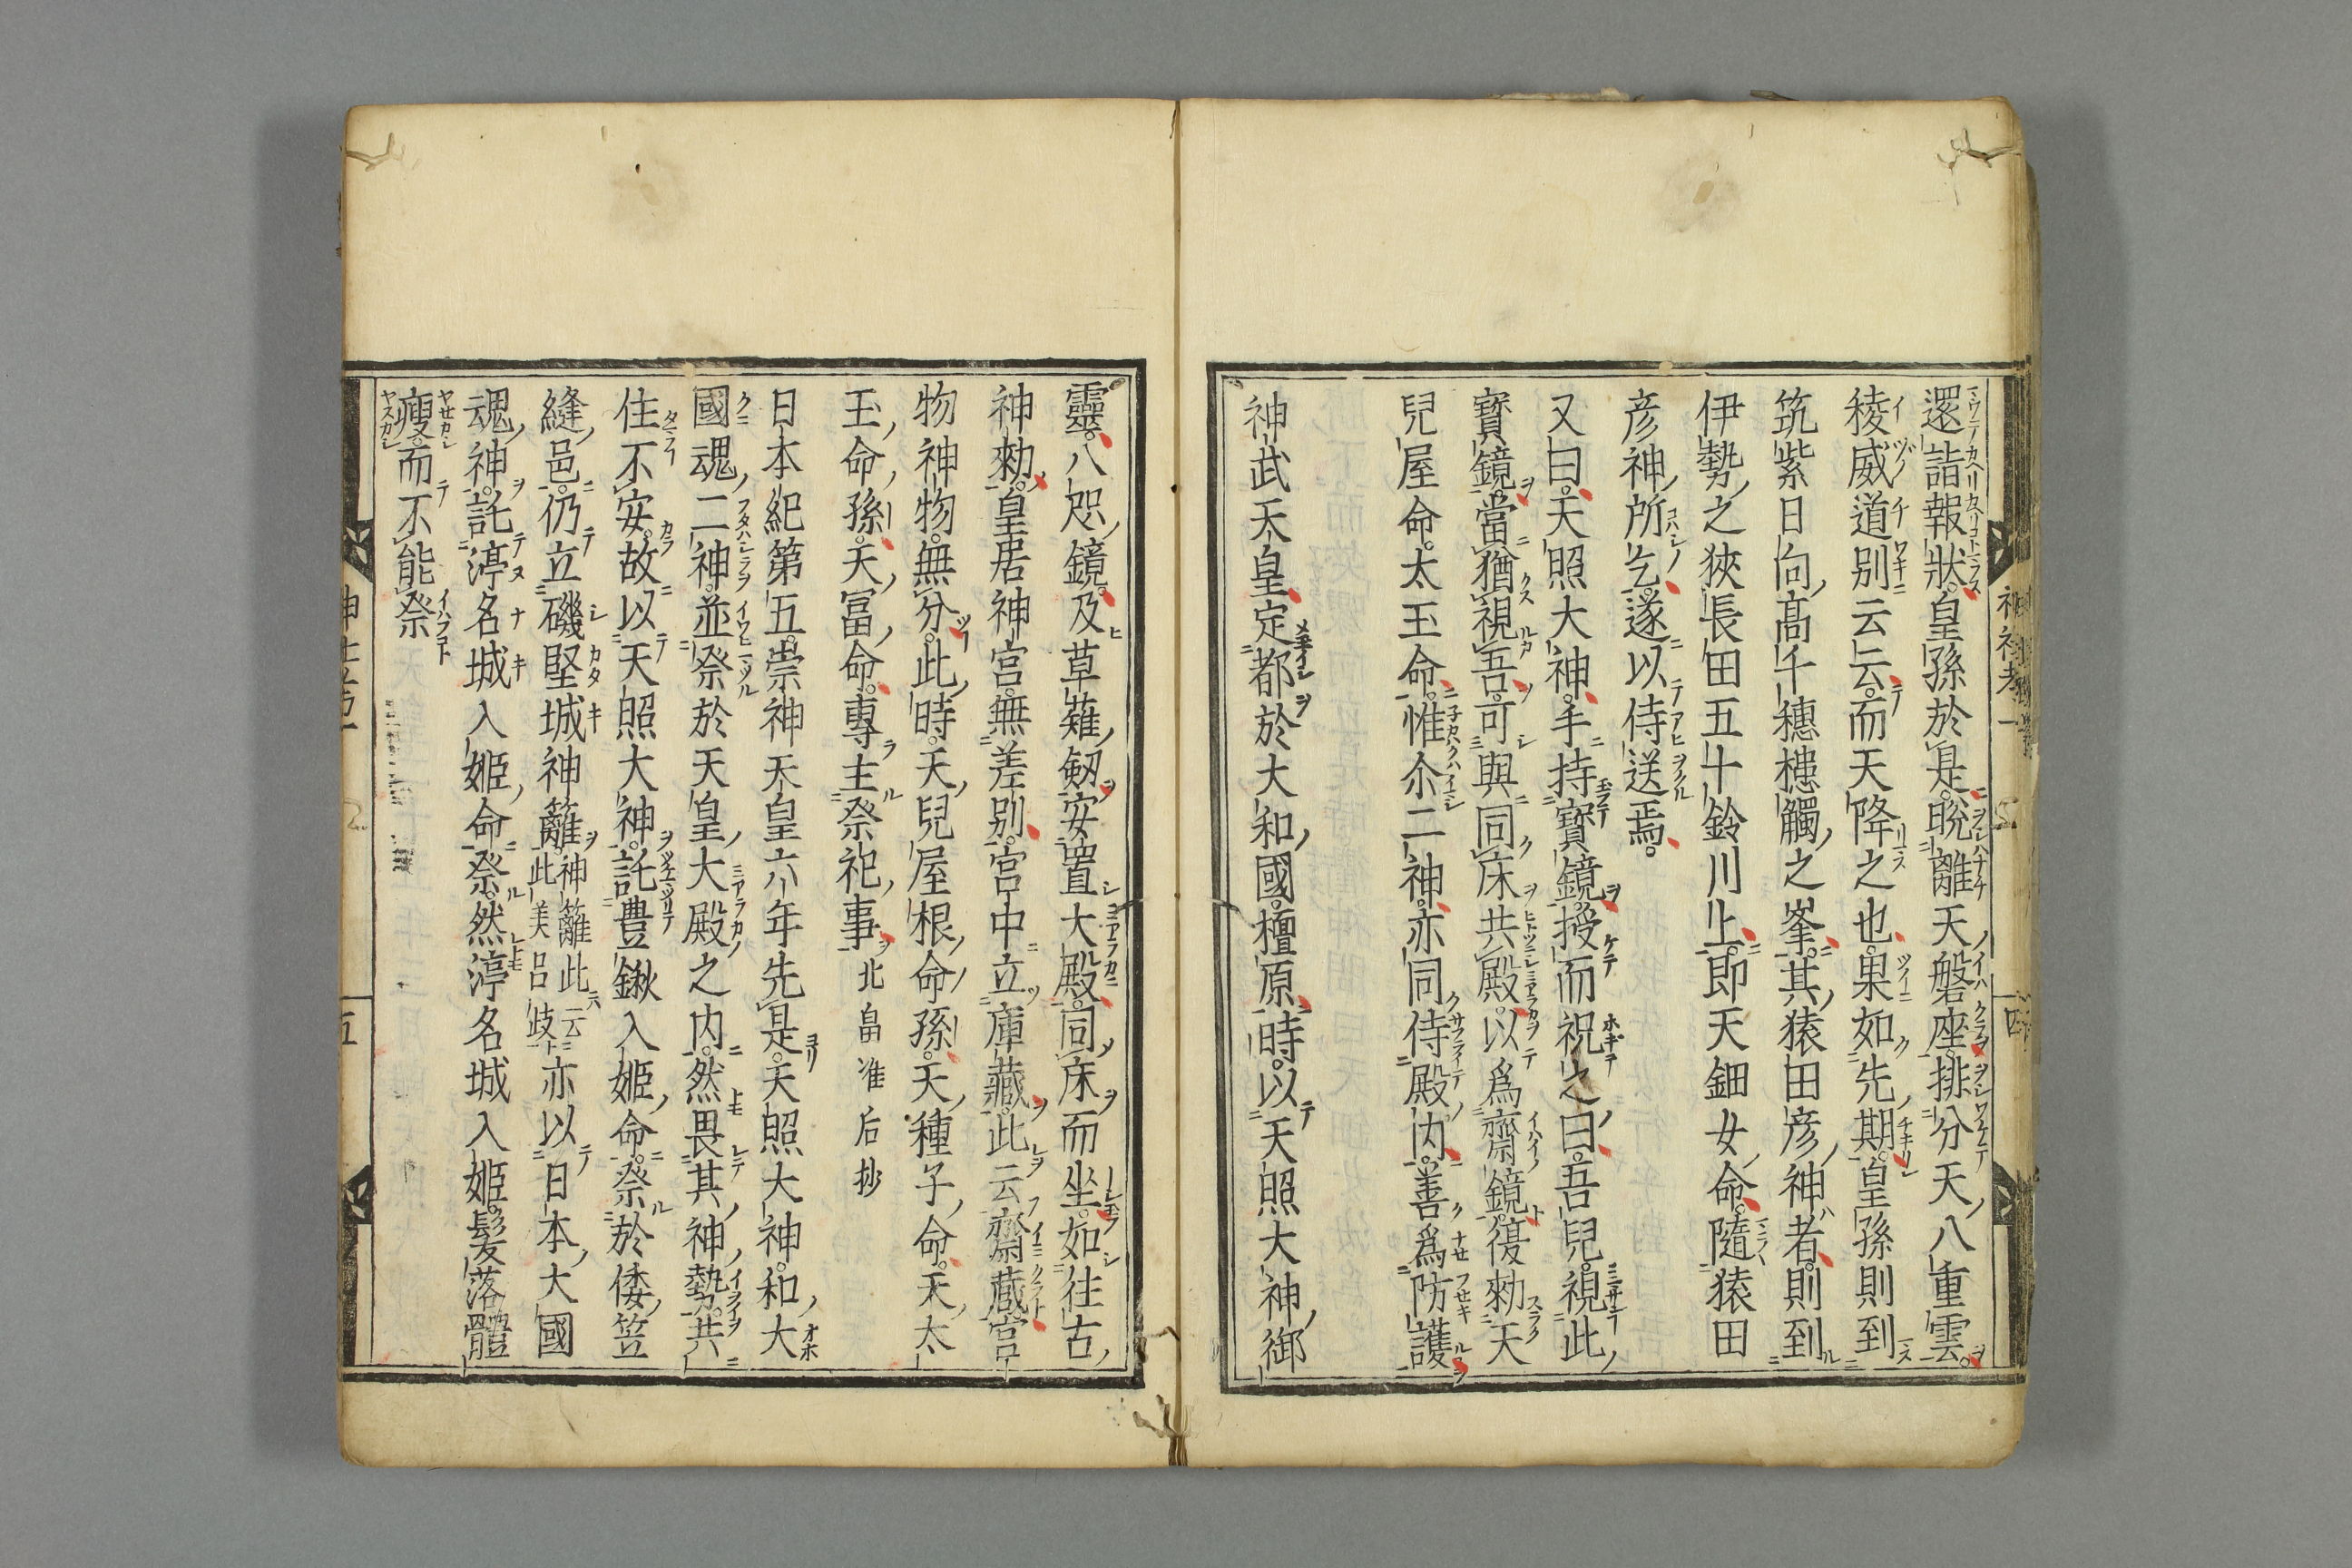 還詣報狀皇孫於是晩離天磐座排分天八重雲
稜威道別云云而天降之也果如先期皇孫則到
筑紫日向高千穗槵觸之峯其猿田彦神者則到
伊勢之狹長田五十鈴川上即天鈿女命隨猿田
彦神所乞遂以侍送焉
又曰天照大神手持寳鏡授而祝之曰吾兒視此
寳鏡當猶視吾可與同床共殿以爲齋鏡復勑天
兒屋命太玉命惟尒二神亦同侍殿内善爲防護
神武天皇定都於大和國檀原時以天照大神御
靈八咫鏡及草薙劔安置大殿同床而坐如往古
神勑皇居神宮無差別宮中立庫藏此云齋藏官
物神物無分此時天兒屋根命孫天種子命天太
玉命孫天冨命專主祭祀事北畠准后抄
日本紀第五崇神天皇六年先是天照大神和大
國魂二神並祭於天皇大殿之内然畏其神勢共
住不安故以天照大神託豊鍬入姫命祭於倭笠
縫邑仍立磯堅城神籬神籬此云此美呂歧亦以日本大國
魂神託渟名城入姫命祭然渟名城入姫髮落體
瘦而不能祭
神社考一
四
五